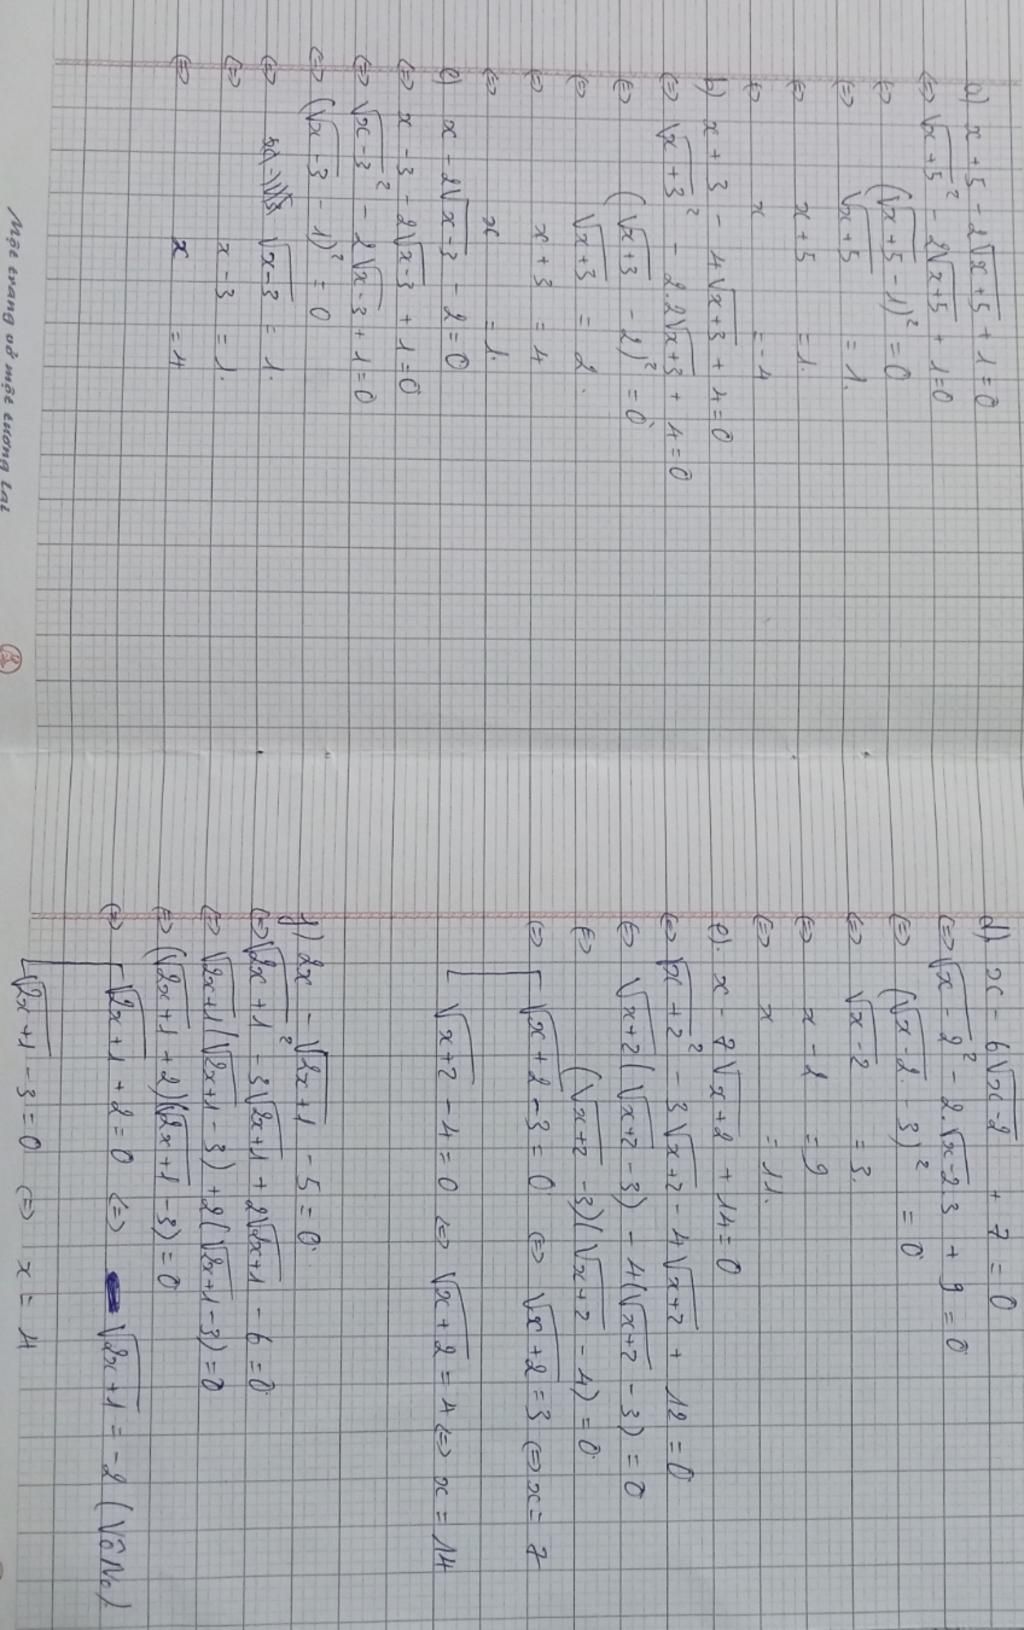 a) x + 5 - 2√(x+5) + 1 = 0
⇔ √(x+5)² - 2√(x+5) + 1 = 0
⇔ (√(x+5) - 1)² = 0
⇔ √(x+5) = 1.
⇔ x + 5 = 1.
⇔ x = -4
b) x + 3 - 4√(x+3) + 4 = 0
⇔ √(x+3)² - 2.2√(x+3) + 4 = 0
⇔ (√(x+3) - 2)² = 0
⇔ √(x+3) = 2.
⇔ x + 3 = 4
⇔ x = 1.
c) x - 2√(x-3) - 2 = 0
⇔ x - 3 - 2√(x-3) + 1 = 0
⇔ √(x-3)² - 2√(x-3) + 1 = 0
⇔ (√(x-3) - 1)² = 0
⇔ √(x-3) = 1.
⇔ x - 3 = 1.
⇔ x = 4
Một trang vở một tương lai
d) x - 6√(x-2) + 7 = 0
⇔ √(x-2)² - 2.√(x-2).3 + 9 = 0
⇔ (√(x-2) - 3)² = 0
⇔ √(x-2) = 3.
⇔ x - 2 = 9
⇔ x = 11.
e). x - 7√(x+2) + 14 = 0
⇔ √(x+2)² - 3√(x+2) - 4√(x+2) + 12 = 0
⇔ √(x+2)(√(x+2) - 3) - 4(√(x+2) - 3) = 0
⇔ (√(x+2) - 3)(√(x+2) - 4) = 0
⇔ [ √(x+2) - 3 = 0 ⇔ √(x+2) = 3 ⇔ x = 7
√(x+2) - 4 = 0 ⇔ √(x+2) = 4 ⇔ x = 14
f) 2x - √(2x+1) - 5 = 0
⇔ √(2x+1)² - 3√(2x+1) + 2√(2x+1) - 6 = 0
⇔ √(2x+1)(√(2x+1) - 3) + 2(√(2x+1) - 3) = 0
⇔ (√(2x+1) + 2)(√(2x+1) - 3) = 0
⇔ [ √(2x+1) + 2 = 0 ⇔ √(2x+1) = -2 (Vô No)
√(2x+1) - 3 = 0 ⇔ x = 4